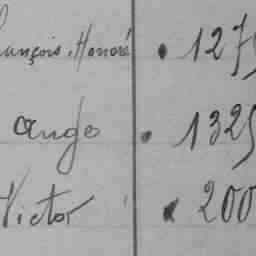 François, Honoré . 1275
ange . 1325
Victor . 200